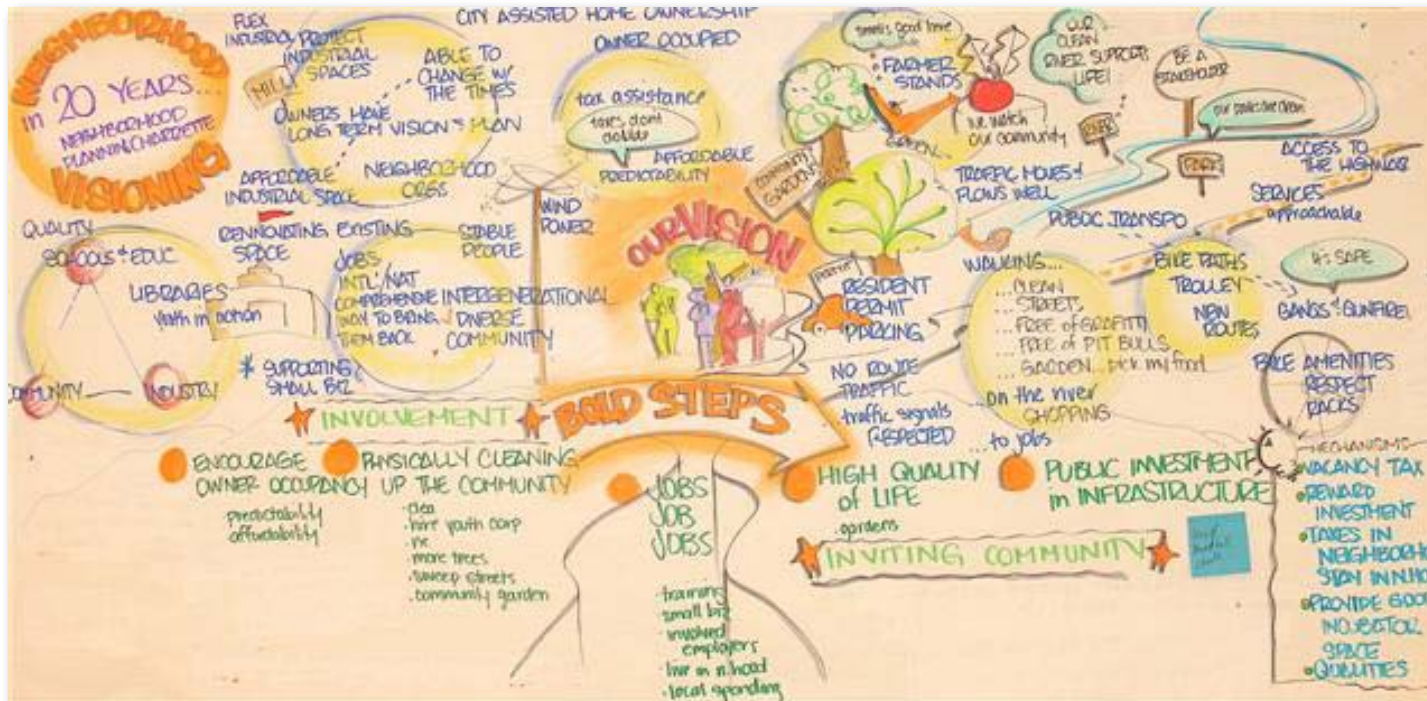 NEIGHBORHOOD
in 20 YEARS...
NEIGHBORHOOD
PLANNING CHARRETTE
VISIONING
FLEX
INDUSTRIAL PROTECT
INDUSTRIAL
SPACES
MILL
ABLE TO
CHANGE W/
THE TIMES
OWNERS HAVE
LONG TERM VISION + PLAN
AFFORDABLE
INDUSTRIAL SPACE
NEIGHBORHOOD
ORGS
CITY ASSISTED HOME OWNERSHIP
OWNER OCCUPIED
tax assistance
taxes don't
double
AFFORDABLE
PREDICTABILITY
WIND
POWER
QUALITY
SCHOOLS + EDUC
COMMUNITY
INDUSTRY
LIBRARIES
Youth in action
RENNOVATING EXISTING
SPACE
* SUPPORTING
SMALL BIZ
JOBS
INT'L/NAT
COMPREHENSIVE
WAY TO BRING
THEM BACK
STABLE
PEOPLE
INTERGENERATIONAL
DIVERSE
COMMUNITY
OUR VISION
COMMUNITY
GARDENS
smells good here
FARMER
STANDS
GREEN...
we watch
our community
OUR
CLEAN
RIVER SUPPORTS
LIFE!
BE A
STAKEHOLDER
PARK
PARK
our parks are clean
TRAFFIC MOVES +
FLOWS WELL
ACCESS TO
THE HIGHWAY
SERVICES
approachable
PUBLIC TRANSPO
PERMIT
RESIDENT
PERMIT
PARKING
NO ROUTE
TRAFFIC
traffic signals
RESPECTED
WALKING...
...CLEAN
STREETS
...FREE of GRAFITTI
...FREE of PIT BULLS
...GARDEN... pick my food
...on the river
SHOPPING
...to jobs
BIKE PATHS
TROLLEY
NEW
ROUTES
it's SAFE
GANGS + GUNFIRE
BIKE AMENITIES
RESPECT
RACKS
BOLD STEPS
INVOLVEMENT
ENCOURAGE
OWNER OCCUPANCY
predictability
affordability
PHYSICALLY CLEANING
UP THE COMMUNITY
.hire youth corp
.more trees
.sweep streets
.community garden
JOBS
JOB
JOBS
.training
.small biz
.involved
employers
.live in n.hood
.local spending
HIGH QUALITY
of LIFE
.gardens
PUBLIC INVESTMENT
in INFRASTRUCTURE
INVITING COMMUNITY
MECHANISMS
VACANCY TAX
REWARD
INVESTMENT
TAXES IN
NEIGHBORHO
STAY IN N.HO
PROVIDE GOOD
INCUBATOR
SPACE
QUALITIES